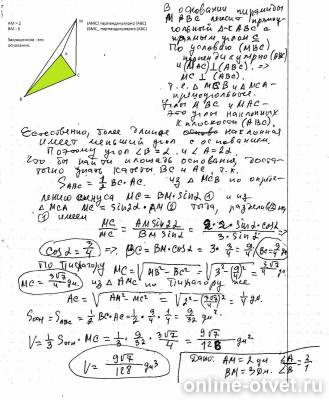 AM = 2
BM = 3
(AMC) перпендикулярно (ABC)
(BMC) перпендикулярно (ABC)
основание.
M
В основании пирамиды
MABC лежит прямоу-
гольный Δ-к ABC с
прямым углом C
По условию (MBC)
перпендикулярно (ABC)
и (MAC)⊥(ABC). =>
MC ⊥ (ABC).
Т.е. Δ MCB и Δ MCA -
прямоугольные.
углы MBC и MAC -
это углы наклонных
к плоскости (ABC).
Естественно, более длинная наклонная
имеет меньший угол с основанием.
Поэтому угол ∠B = α, и ∠A = 2α.
Что бы найти площадь основания, доста-
точно знать катеты BC и AC, т.к.
S_ABC = 1/2 BC·AC. из Δ MCB по опре-
делению синуса MC = BM·sin α ① и из
Δ MCA MC = sin 2α · AM ② тогда, разделив ② на
① имеем
MC/MC = AM sin 2α / BM sin α = 2·2·sin α·cos α / 3·sin α =>
cos α = 3/4 => BC = BM·cos α = 3·3/4 = 9/4
По Пифагору MC = √MB² − BC² = √3² − (9/4)² = 3√7/4 дм.
MC = 3√7/4 дм. из Δ AMC по Пифагору же
AC = √AM² − MC² = √2² − (3√7/4)² = 1/4 дм.
Sосн = S_ABC = 1/2 BC·AC = 1/2·9/4·1/4 = 9/32 дм².
V = 1/3 Sосн · MC = 1/3·9/32·3√7/4 = 9√7/128 дм³
V = 9√7/128 дм³
Дано: AM = 2 дм. ∠A/∠B = 2/1
BM = 3 дм.
online-otvet.ru